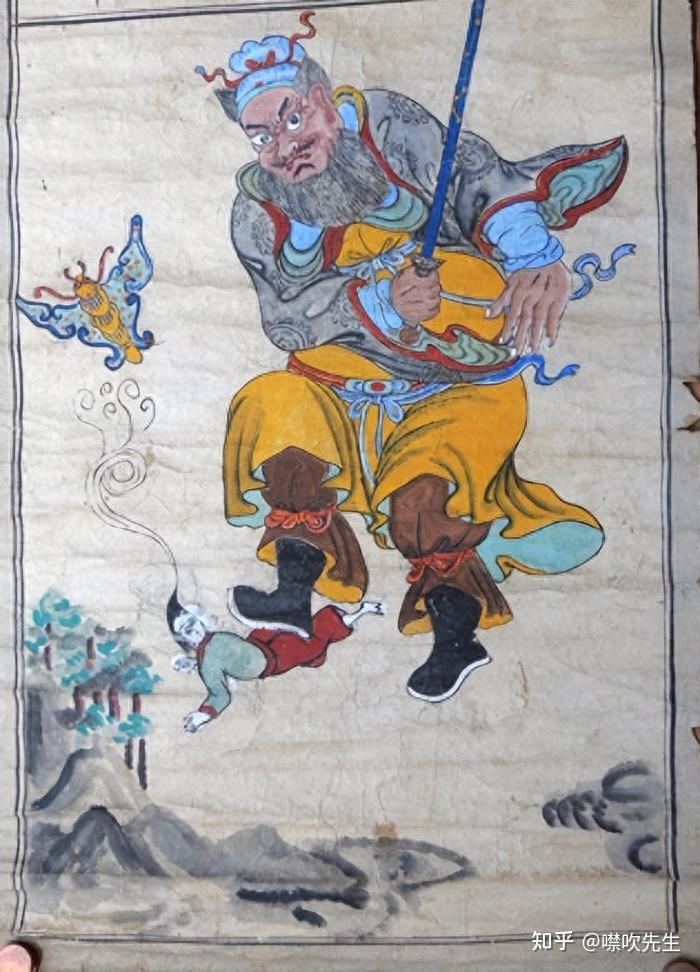 知乎 @噤吹先生